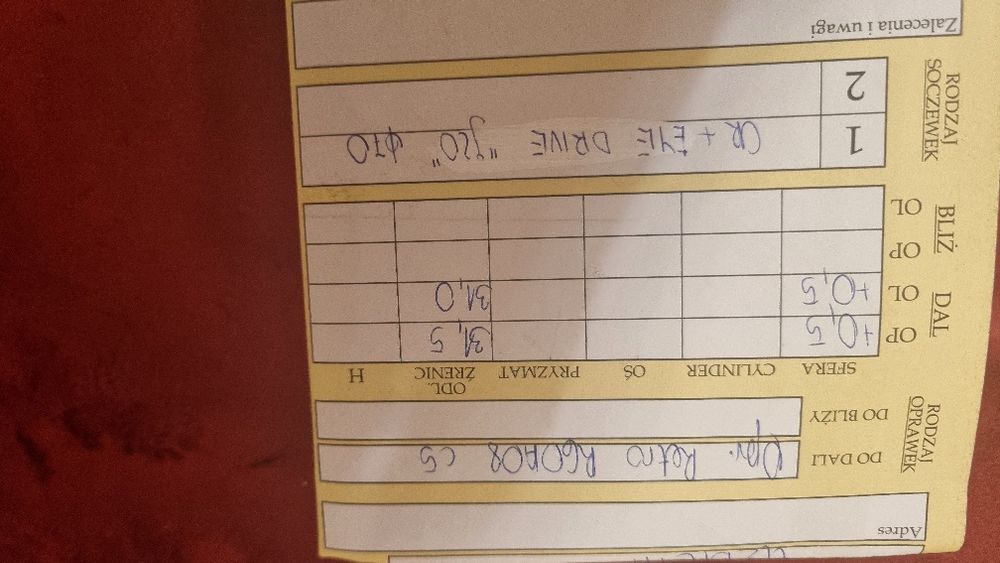 Adres
RODZAJ OPRAWEK
DO DALI Opr. Retro R60A08 C5
DO BLIŻY
SFERA CYLINDER OŚ PRYZMAT ODL. ŹRENIC H
DAL
OP +0,5 31,5
OL +0,5 31,0
BLIŻ
OP
OL
RODZAJ SOCZEWEK
1 CR + EYE DRIVE "920" φ70
2
Zalecenia i uwagi